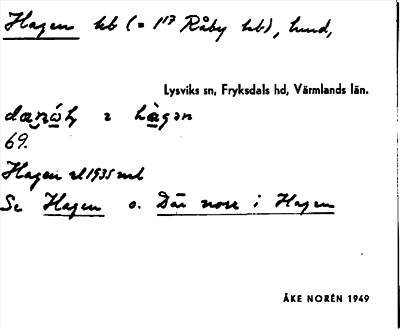 Hagen hb (= 1¹⁷ Råby hb), hmd,
Lysviks sn, Fryksdals hd, Värmlands län.
hàgən
69.
Hagen el 1935 ml
Se Hagen o. Där norr i Hagen
ÅKE NORÉN 1949